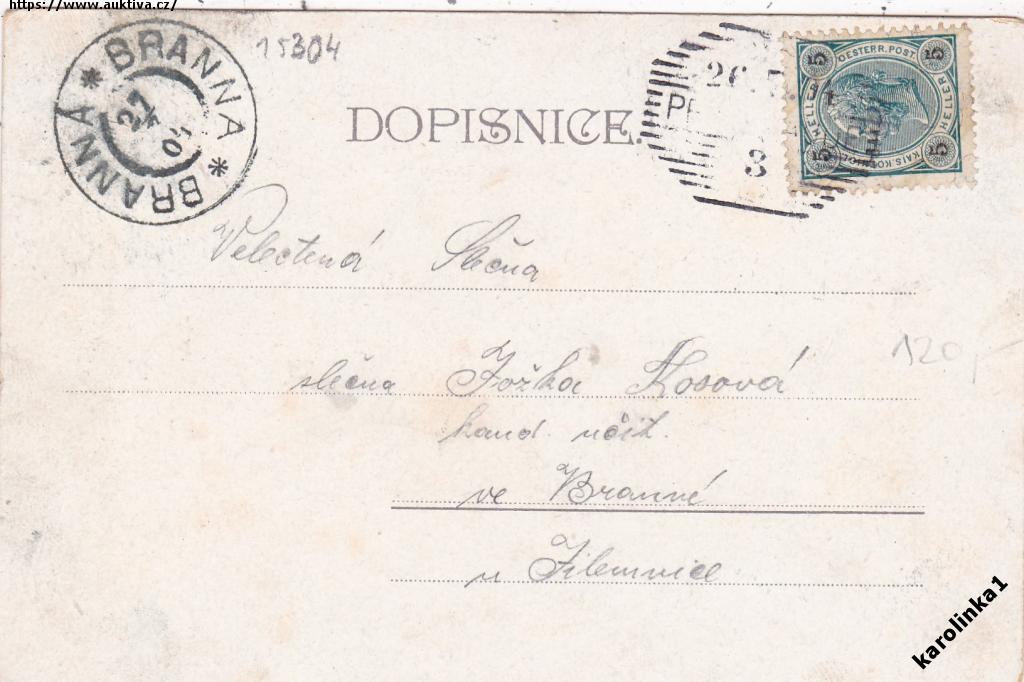 https://www.auktiva.cz/
15304
BRANNA * BRANNÁ *
27
DOPISNICE.
26
3
5 5
OESTERR. POST.
HELLER HELLER
5 5
Velectená Slečna
120,-
slečna Jožka Kosová
kand. učit.
ve Branné
u Jilemnice
karolinka1